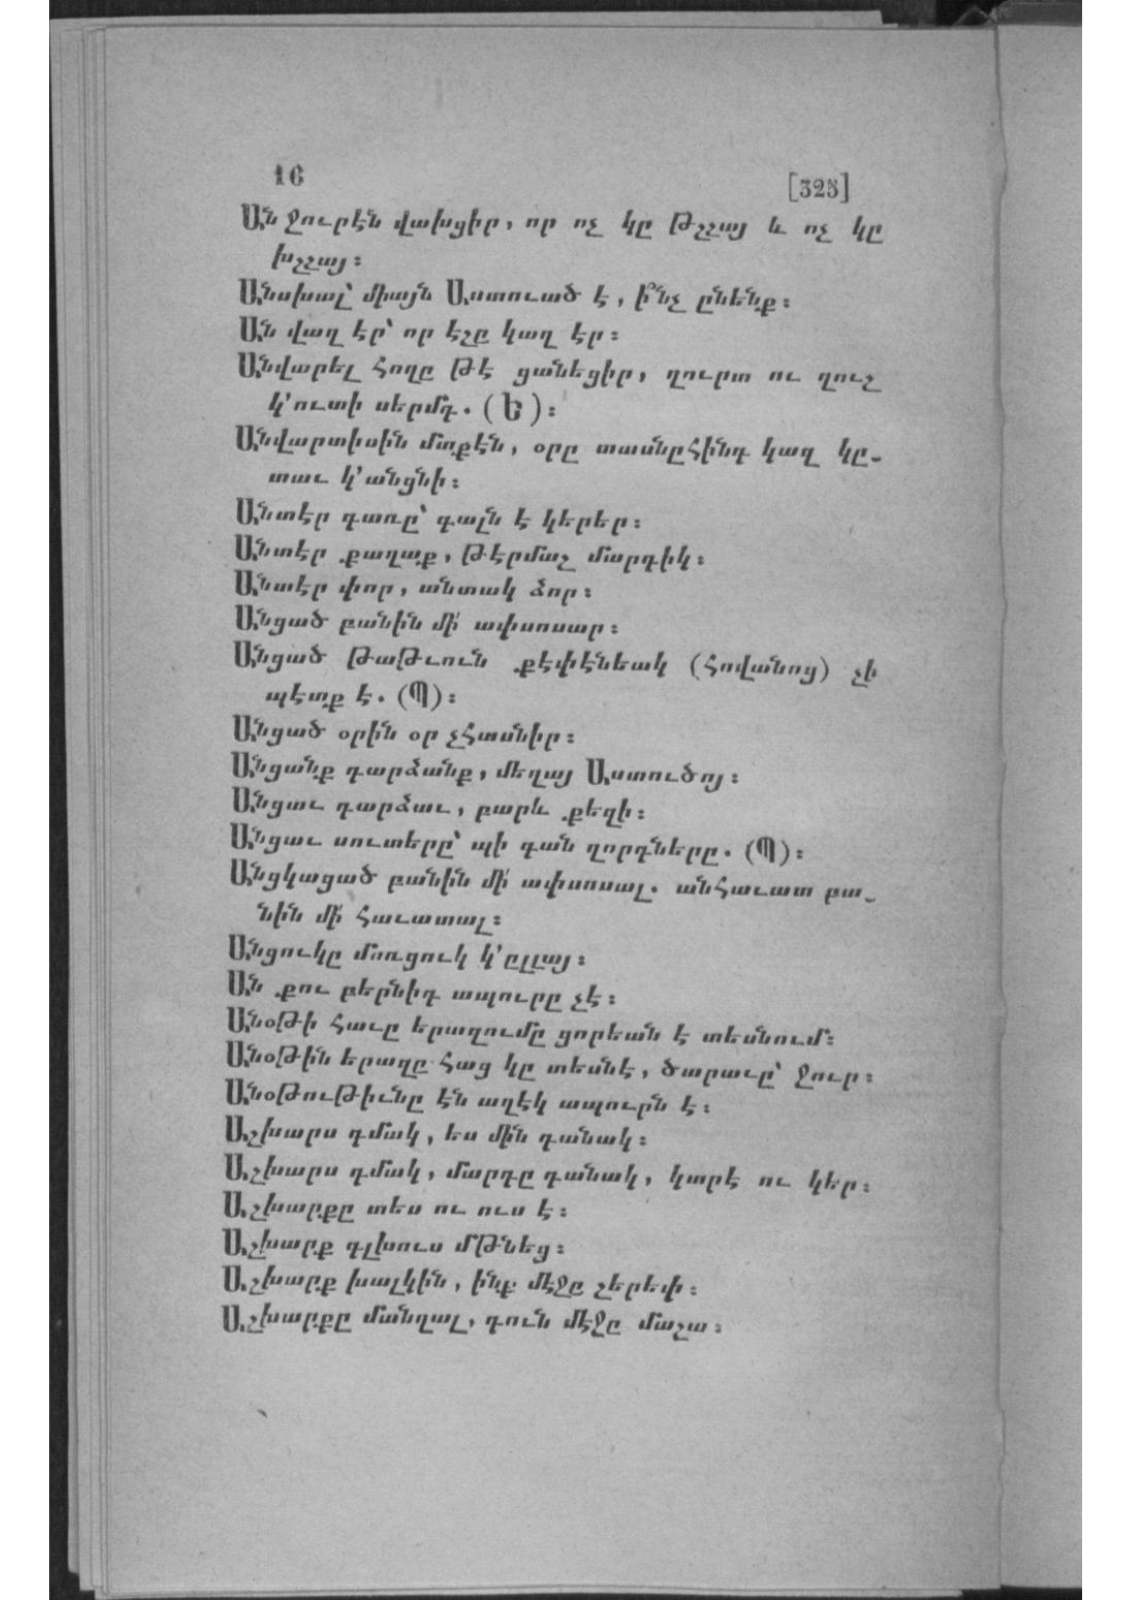 16
[325]
Ան ջուրէն վախցիր, որ ոչ կը թչչայ և ոչ կը
խչչայ։
Անսխալ՝ միայն Աստուած է, ի՞նչ ընենք։
Ան վաղ էր՝ որ էշը կաղ էր։
Անվարել հողը թէ ցանեցիր, ղուրտ ու ղուշ
կ՚ուտի սերմդ. (Ե)։
Անվարտիսին մտքէն, օրը տասնըհինգ կազ կը-
տաւ կ՚անցնի։
Անտէր գառը՝ գայլն է կերեր։
Անտէր քաղաք, թէրմաշ մարդիկ։
Անտէր փոր, անտակ ձոր։
Անցած բանին մի՛ ափսոսար։
Անցած թաթւուն քէփէնեակ (հովանոց) չի
պէտք է. (Պ)։
Անցած օրին օր չհասնիր։
Անցանք դարձանք, մեղայ Աստուծոյ։
Անցաւ դարձաւ, բարև քեզի։
Անցաւ սուտերը՝ պի գան ղորդները. (Պ)։
Անցկացած բանին մի՛ ափսոսալ. անհաւատ բա-
նին մի՛ հաւատալ։
Անցուկը մոռցուկ կ՚ըլլայ։
Ան քու բերնիդ ապուրը չէ։
Անօթի հաւը երազումը ցորեան է տեսնում։
Անօթին երազը հաց կը տեսնէ, ծարաւը՝ ջուր։
Անօթութիւնը էն աղէկ ապուրն է։
Աշխարս դմակ, ես մին դանակ։
Աշխարս դմակ, մարդը դանակ, կտրէ ու կեր։
Աշխարքը տես ու ուս է։
Աշխարք գլխուս մթնեց։
Աշխարք խալկին, ինք մէջը չերեփ։
Աշխարքը մանղալ, դուն մէջը մաշա։